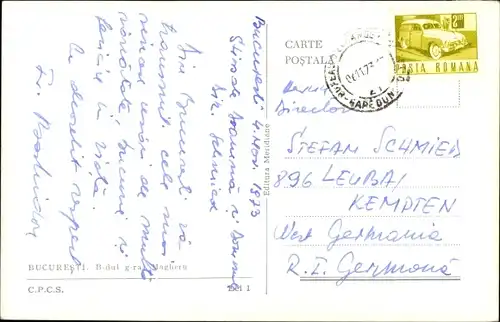 București 4.Nov. 1973
Stimate Doamnă și Domnule
Dir. Schmied
Din București vă
transmit cele mai
sincere urări de multă
sănătate, bucurii și
fericire în viață.
Cu deosebit respect
BUCUREȘTI. B-dul g-ral Magheru
C.P.C.S.
Editura Meridiane
CARTE
POȘTALĂ
2 Lei
POSTA ROMANA
Director
STEFAN SCHMIED
896 LEUBAS/
KEMPTEN
West Germania
R. F. Germană